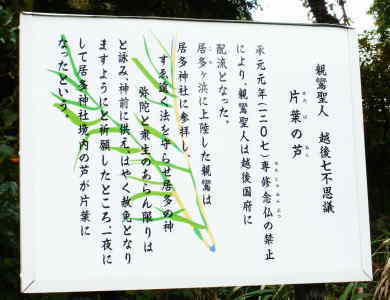 親鸞聖人　越後七不思議
片葉の芦
かたは　あし
承元元年(一二〇七)専修念仏の禁止
せんじゅねんぶつ
により、親鸞聖人は越後国府に
配流となった。
居多ヶ浜に上陸した親鸞は
こた
居多神社に参拝し、
すゑ遠く法を守らせ居多の神
弥陀と衆生のあらん限りは
と詠み、神前に供え、はやく赦免となり
ますようにと祈願したところ、一夜に
して居多神社境内の芦が片葉に
なったという。